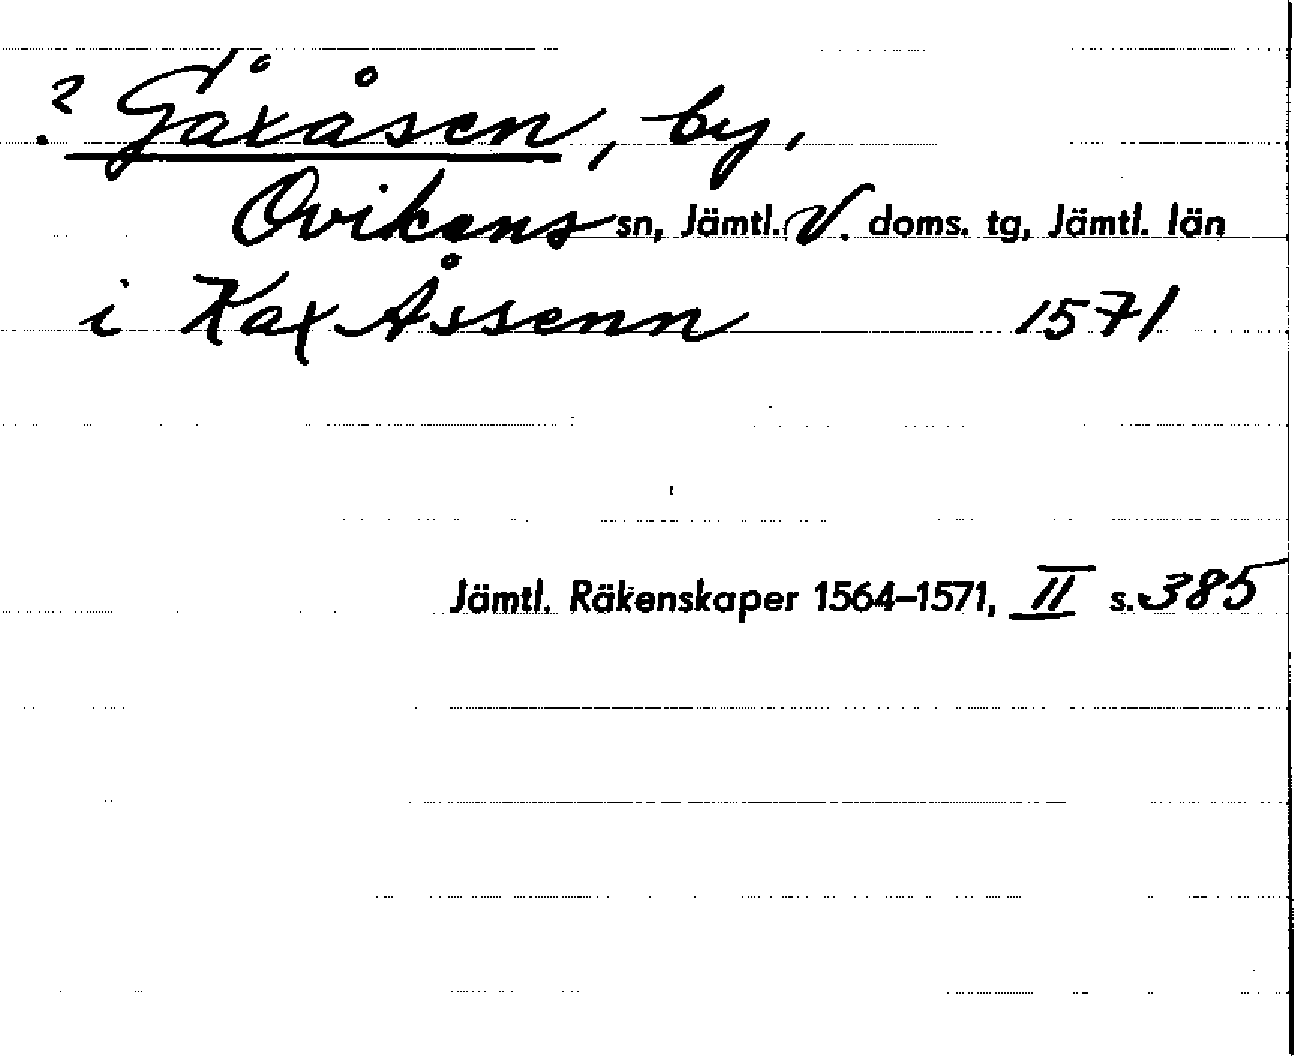 ? Gåxåsen, by,
Ovikens sn, Jämtl. V. doms. tg, Jämtl. län
i Kax Åssenn 1571
Jämtl. Räkenskaper 1564–1571, II s. 385